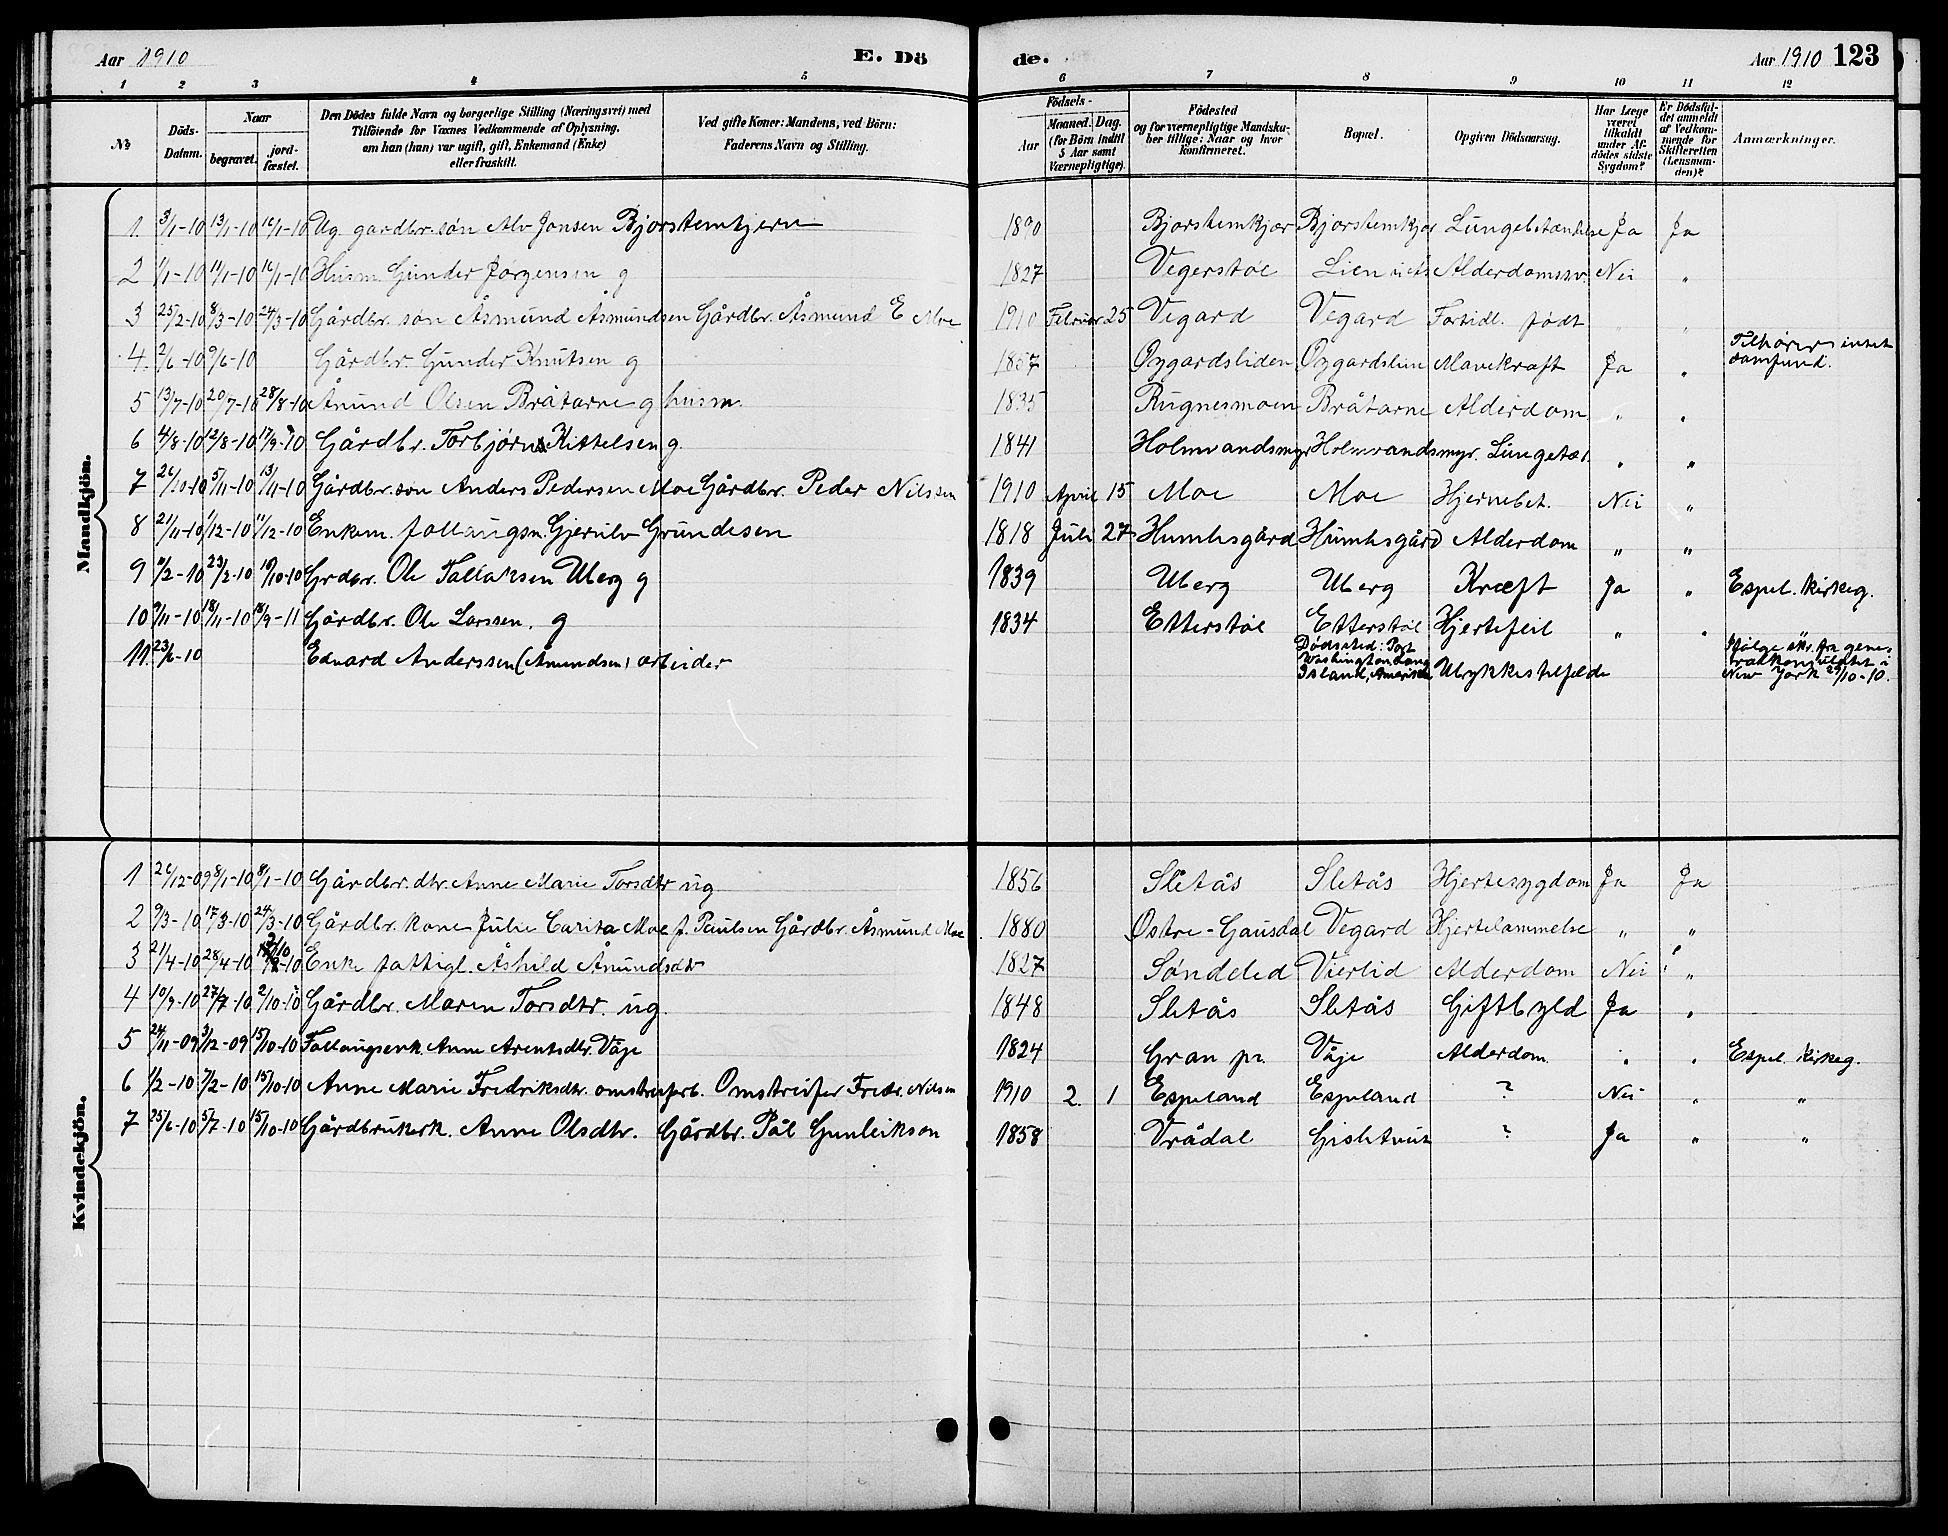 Aar 1910 E. Dö de. Aar 1910 123
1 2 3 4 5 6 7 8 9 10 11 12
№ Döds-Datum. Naar begravet. jord-fæstet. Den Dödes fulde Navn og borgerlige Stilling (Næringsvei) med Tilföiende for Voxnes Vedkommende af Oplysning, om han (hun) var ugift, gift, Enkemand (Enke) eller fraskilt. Ved gifte Koner: Mandens, ved Börn: Faderens Navn og Stilling. Födsels- Aar Maaned. Dag. (for Börn indtil 5 Aar samt Værnepligtige). Födested og for værnepligtige Mandskaber tillige: Naar og hvor konfirmeret. Bopæl. Opgiven Dödsaarsag. Har Læge været tilkaldt under Afdödes sidste Sygdom? Er Dödsfaldet anmeldt af Vedkommende for Skifteretten (Lensmanden)? Anmærkninger.
Mandkjön.
1. 3/1-10 13/1-10 16/1-10 Ug. gardbr. søn Alv Jonsen Bjorstemkjern 1890 Bjorstemkjær Bjorstemkjær Lungebetændelse Ja Ja
2 1/1-10 11/1-10 16/1-10 Husm. Gunder Jörgensen g 1827 Vegerstøl Lien Alderdomssv. Nei "
3 25/2-10 8/3-10 24/3-10 Gårdbr. søn Åsmund Åsmundsen Gårdbr. Åsmund E Moe 1910 Februar 25 Vegard Vegard Fortidl. født " "
4. 2/6-10 9/6-10 Gårdbr. Gunder Knutsen g 1857 Oygardsliden Oygardslien Mavekræft Ja " Tilhører intet samfund.
5 13/7-10 20/7-10 28/8-10 Ånund Olsen Bråtarne g husm. 1835 Rugnesmoen Bråtarne Alderdom " "
6 4/8-10 12/8-10 17/9-10 Gårdbr. Torbjørn Kittelsen g. 1841 Holmvandsmyr Holmvandsmyr. Lungetær. " "
7 26/10-10 5/11-10 13/11-10 Gårdbr. søn Anders Pedersen Moe Gårdbr. Peder Nilssen 1910 April 15 Moe Moe Hjernebet. Nei "
8 21/11-10 1/12-10 11/12-10 Enkem. follaugsm. Gjerulv Grundesen 1818 Juli 27 Humlesgård Humlesgård Alderdom " "
9 11/2-10 23/2-10 19/10-10 Grdbr. Ole Tallaksen Uberg g 1839 Uberg Uberg Kræft Ja " Espel. kirkeg.
10 9/11-10 18/11-10 18/9-11 Gårdbr. Ole Larssen. g 1834 Etterstøl Etterstøl Hjertefeil " "
11. 23/6-10 Edvard Anderssen (Åmundsen) arbeider Dødssted: Port Washington Long Island, Amerika Ulykkestilfelde Ifølge skr. fra generalkonsulatet i New York 29/10-10.
Kvindekjön.
1 26/12-09 8/1-10 8/1-10 Gårdbr. dtr. Anne Marie Torsdtr ug. 1856 Sletås Sletås Hjertesygdom Ja Ja
2 9/3-10 17/3-10 24/3-10 Gårdbr. kone Julie Carita Moe f. Paulsen Gårdbr. Åsmund Moe 1880 Østre-Gausdal Vegard Hjertelammelse " "
3 21/4-10 28/4-10 2/10-10 Enke fattigl. Åshild Ånundsdtr 1827 Søndeled Vierlid Alderdom Nei "
4 19/9-10 27/9-10 2/10-10 Gårdbr. Maren Torsdtr. ug. 1848 Sletås Sletås Giftbyld Ja "
5 24/11-09 3/12-09 15/10-10 Follaugsenk. Anne Arentsdtr. Våje 1824 Gran pr. Våje Alderdom. " " Espel. kirkeg.
6 1/2-10 7/2-10 15/10-10 Anne Marie Fredriksdtr. omstreiferb. Omstreifer Fredr. Nilsen 1910 2. 1 Espeland Espeland ? Nei " "
7 25/6-10 5/7-10 15/10-10 Gårdbrukerk. Anne Olsdtr. Gårdbr. Pål Gunleikson 1858 Vrådal ? Ja " "